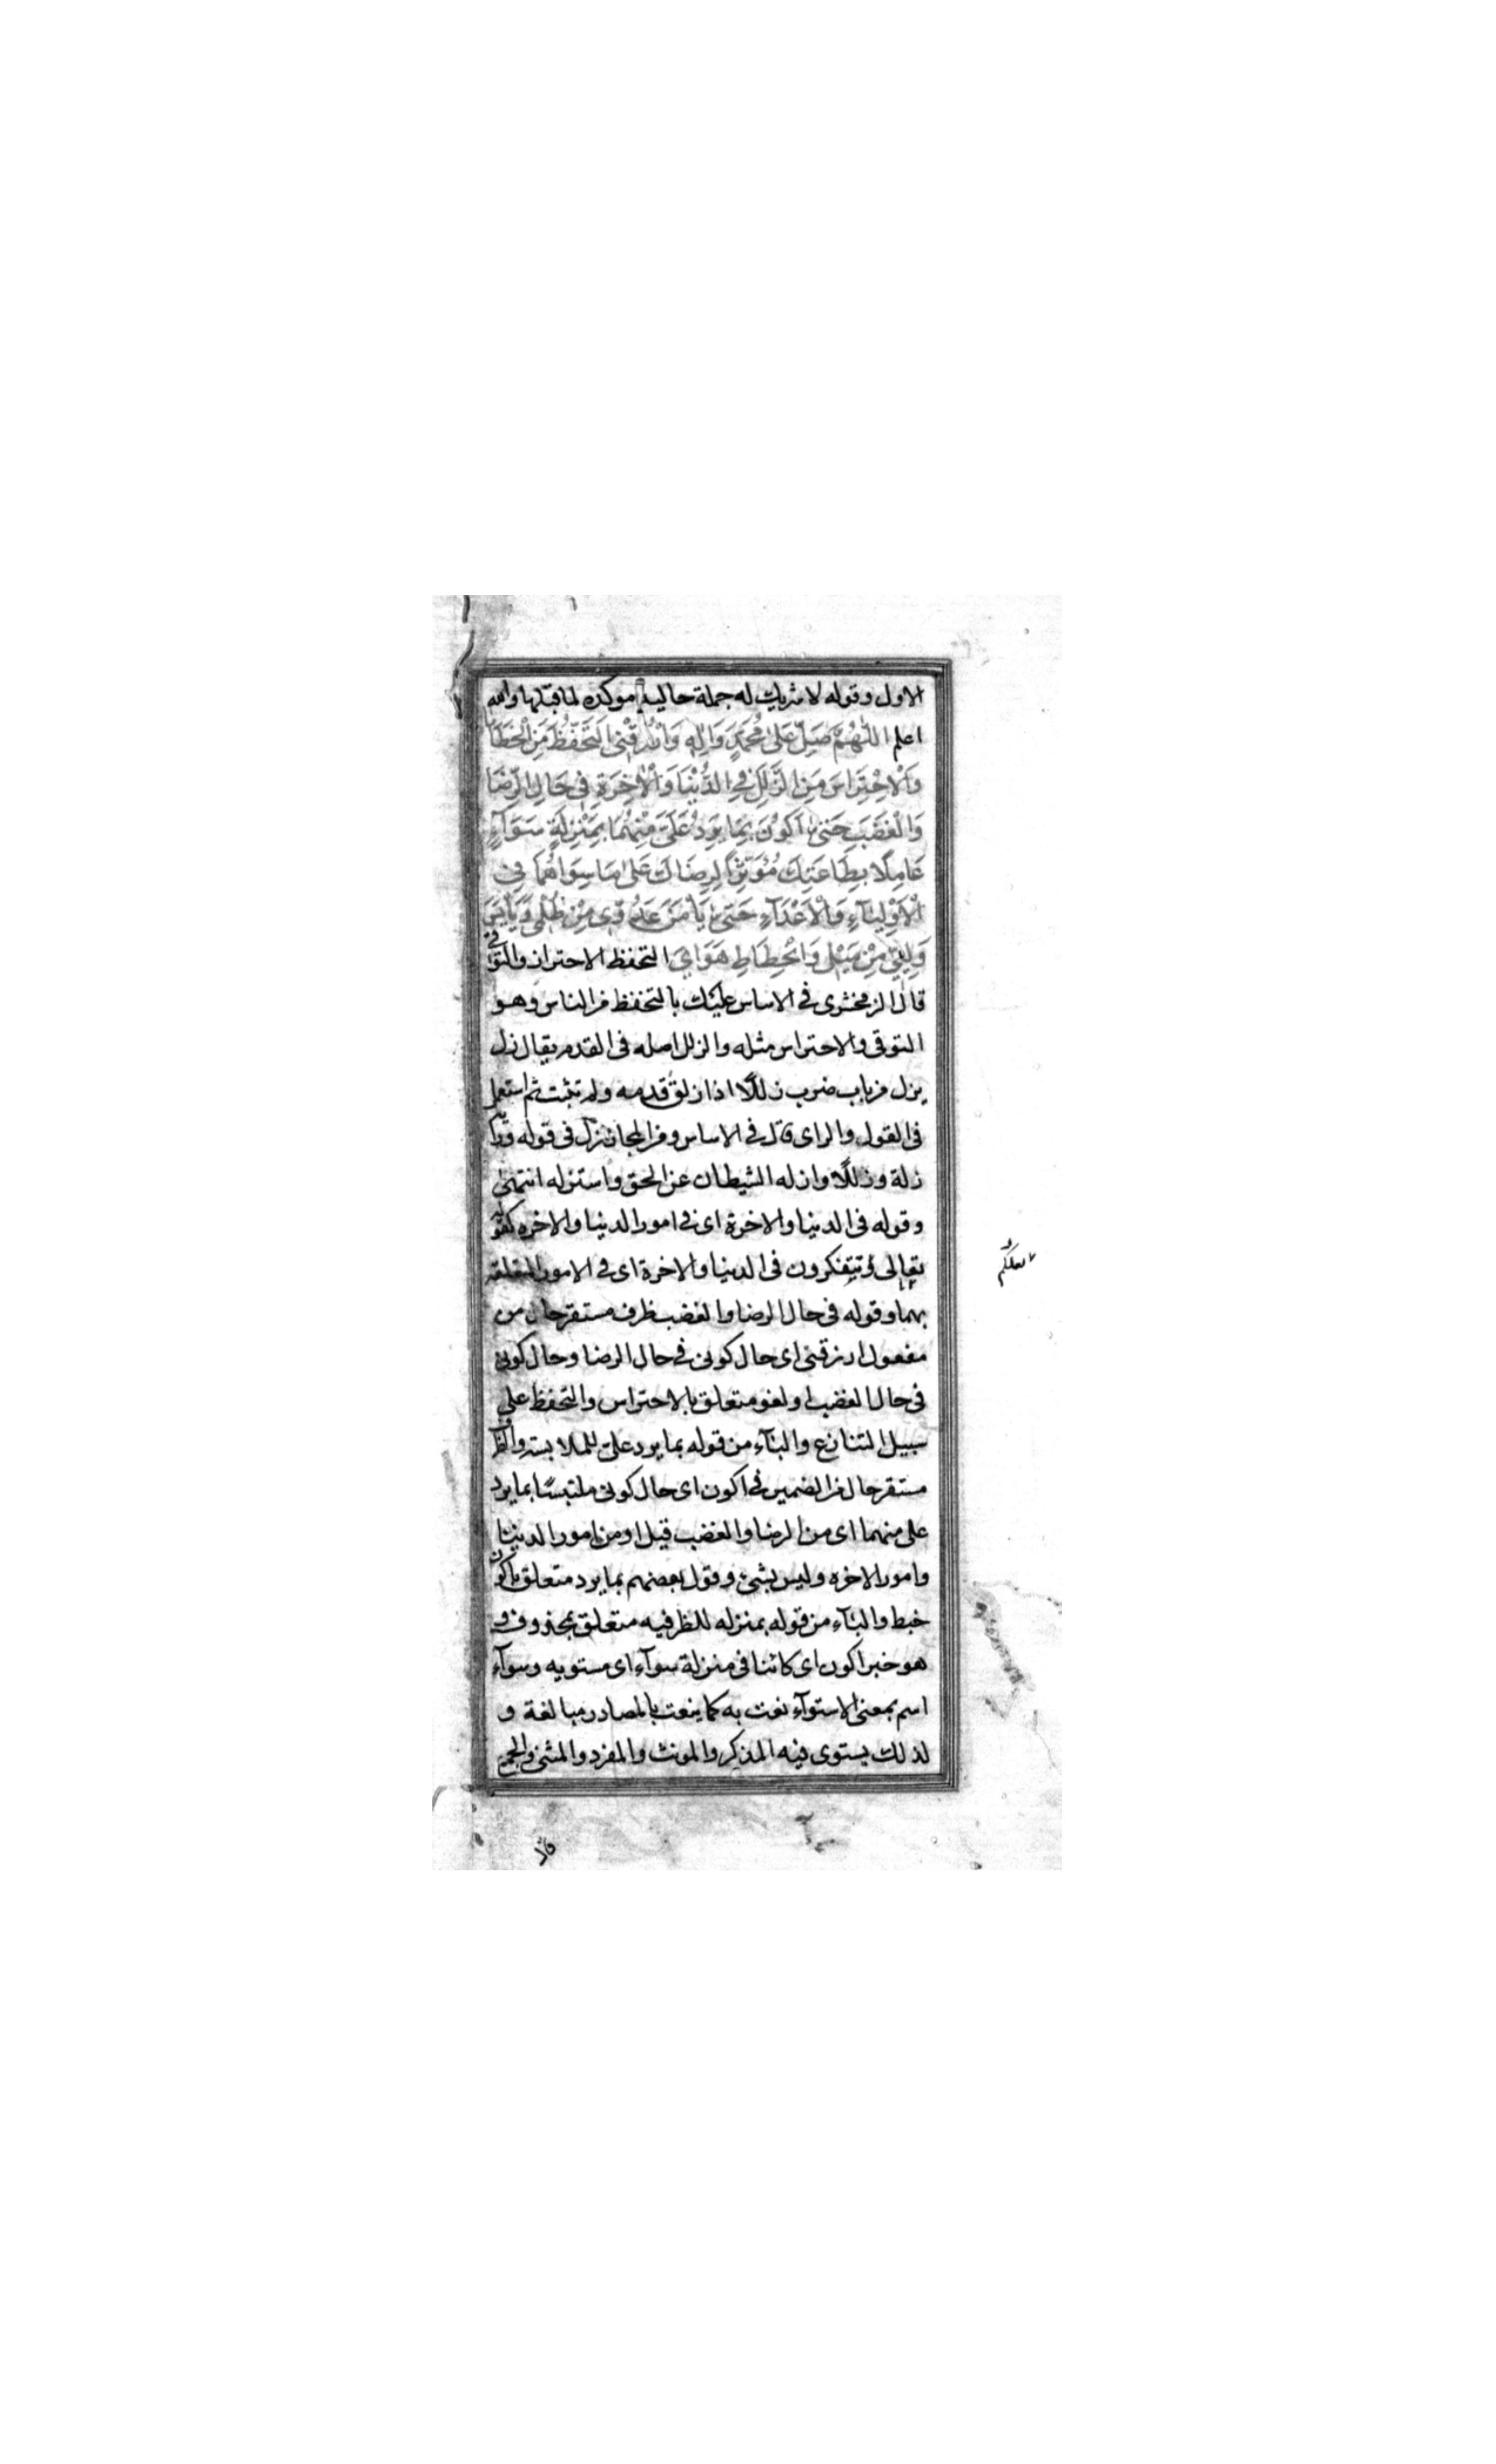 الاول وقوله لا شريك له جملة حالية موكده لما قبلها والله
اعلم اَللّٰهُمَّ صَلِّ عَلىٰ مُحَمَّدٍ وَاٰلِهِ وَارْزُقْنِى التَّحَفُّظَ مِنَ الْخَطَايَا
وَالْاِحْتِرَاسَ مِنَ الزَّلَلِ فِى الدُّنْيَا وَالْاٰخِرَةِ فِى حَالِ الرِّضَا
وَالْغَضَبِ حَتىّٰ اَكُونَ بِمَا يَرِدُ عَلَىَّ مِنْهُمَا بِمَنْزِلَةٍ سَوَآءٍ
عَامِلًا بِطَاعَتِكَ مُؤْثِرًا لِرِضَاكَ عَلىٰ مَا سِوَاهُمَا فِى
الْاَوْلِيَآءِ وَالْاَعْدَآءِ حَتىّٰ يَاْمَنَ عَدُوّى مِنْ ظُلْمِى وَيَاْيَسَ
وَلِيّىِ مِنْ مَيْلى وَانْحِطَاطِ هَوَاىَ التحفظ الاحتراز والتوقى
قال الزمخشرى فى الاساس عليك بالتحفظ من الناس وهو
التوقى والاحتراس مثله والزلل اصله فى القدم يقال زل
يزل من باب ضرب زللًا اذا زلق قدمه ولم تثبت ثم استعمل
فى القول والراى قال فى الاساس ومن المجاز زل فى قوله ورايه
زلة وزللًا وازله الشيطان عن الحق واستزله انتهىٰ
وقوله فى الدنيا والاخرة اى فى امور الدنيا والاخره كقوله
تعالى تتفكرون فى الدنيا والاخرة اى فى الامور المتعلقه
لعلكم
بهما وقوله فى حال الرضا والغضب ظرف مستقر حال من
مفعول ارزقنى اى حال كونى فى حال الرضا وحال كونى
فى حال الغضب او لغو متعلق بالاحتراس والتحفظ على
سبيل التنازع والبآء من قوله بما يرد علىّ للملابسة والظرف
مستقر حال من الضمير فى اكون اى حال كونى ملتبسًا بما يرد
على منهما اى من الرضا والغضب قيل او من امور الدنيا
وامور الاخره وليس بشئ وقول بعضهم بما يرد متعلق باكون
خبط والبآء من قوله بمنزله للظرفيه متعلق بمحذوف و
هو خبر اكون اى كائنا فى منزلة سوآء اى مستويه وسوآء
اسم بمعنى الاستوآء نعت به كما ينعت بالمصادر مبالغة و
لذلك يستوى فيه المذكر والمونث والمفرد والمثنى والجمع